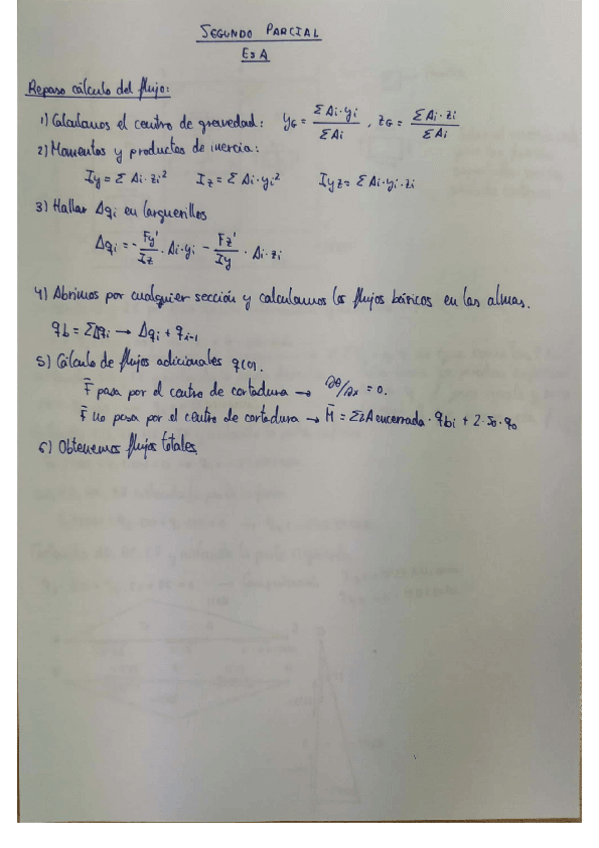 SEGUNDO PARCIAL
EDA
Repaso cálculo del flujo:
1) Calculamos el centro de gravedad: yG = ΣAi·yi / ΣAi , zG = ΣAi·zi / ΣAi
2) Momentos y productos de inercia:
Iy = Σ Ai·zi² Iz = Σ Ai·yi² Iyz = Σ Ai·yi·zi
3) Hallar Δqi en larguerillos
Δqi = - Fy'/Iz · Ai·yi - Fz'/Iy · Ai·zi
4) Abrimos por cualquier sección y calculamos los flujos básicos en las almas.
qb = ΣΔqi → Δqi + qi-1
5) Cálculo de flujos adicionales q(0).
F̄ pasa por el centro de cortadura → ∂θ/∂x = 0.
F̄ no pasa por el centro de cortadura → M̄ = Σ2A encerrada · qbi + 2·S0·q0
6) Obtenemos flujos totales